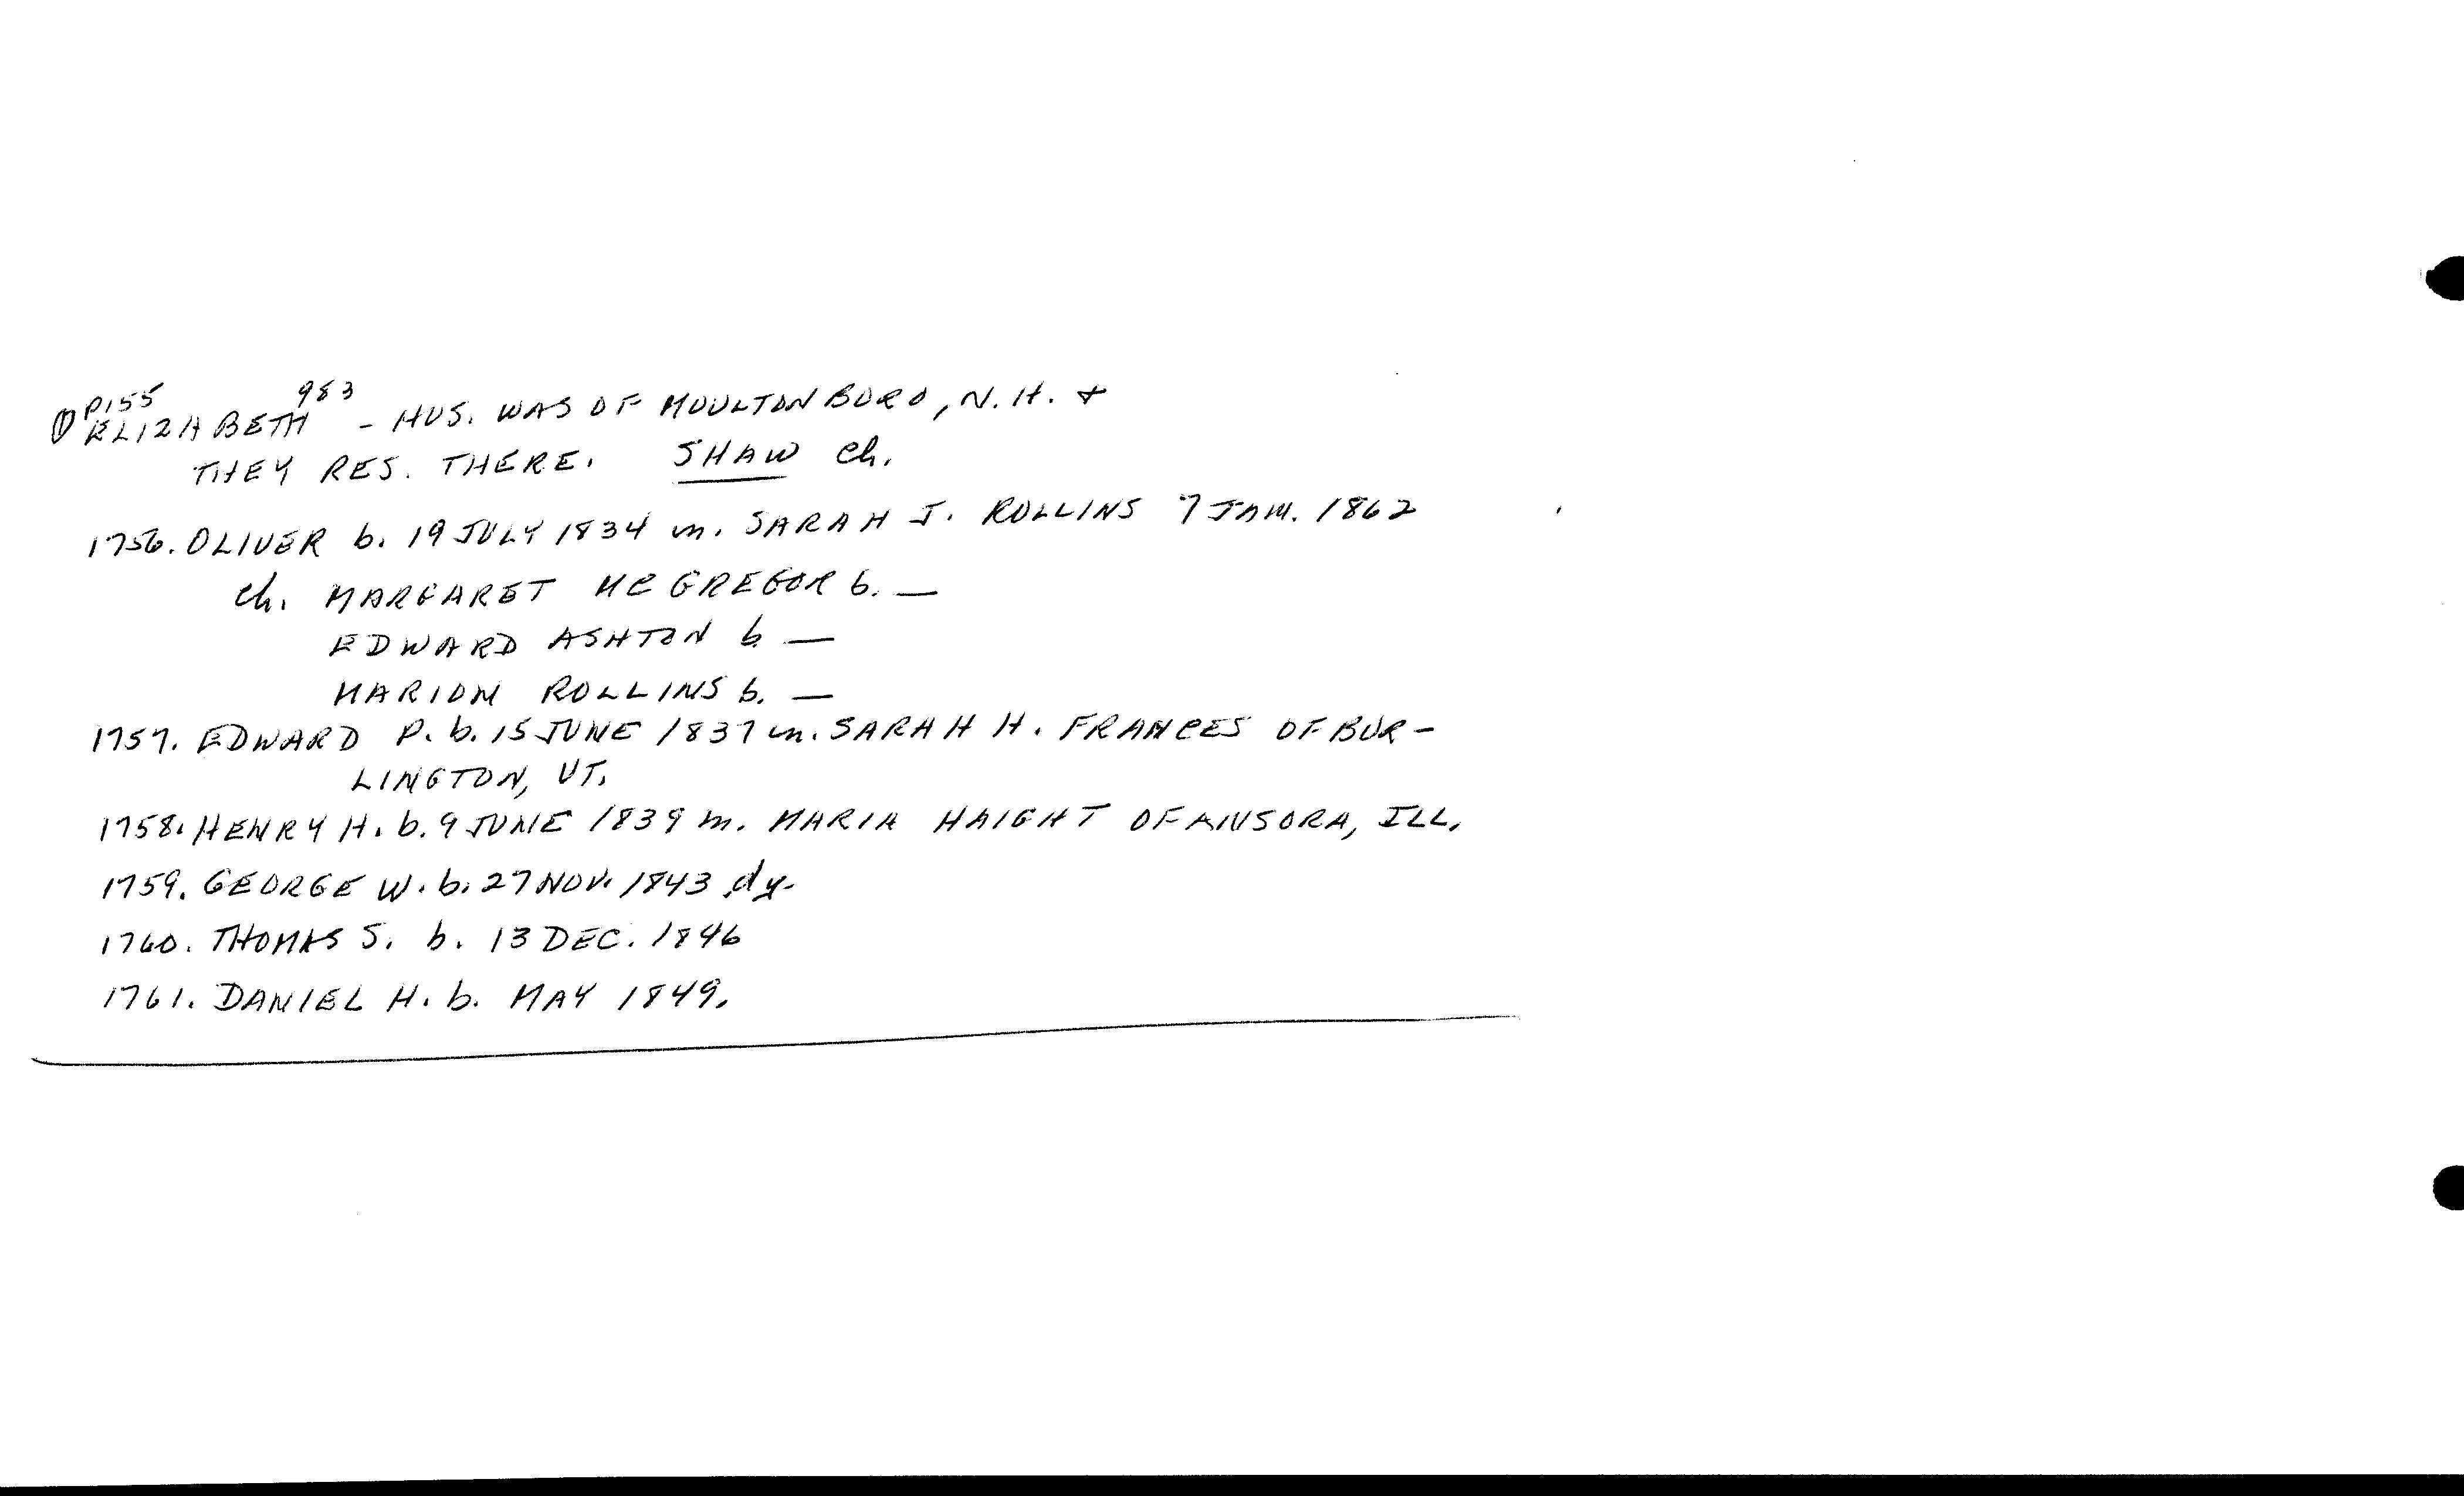 ① P155
ELIZABETH 983 - HUS. WAS OF MOULTONBORO, N.H. +
THEY RES. THERE. SHAW ch.
1756. OLIVER b. 19 JULY 1834 m. SARAH J. ROLLINS 7 JAN. 1862
ch. MARGARET MCGREGOR b. —
EDWARD ASHTON b —
MARION ROLLINS b. —
1757. EDWARD P. b. 15 JUNE 1837 m. SARAH H. FRANCES OF BUR-
LINGTON, VT.
1758. HENRY H. b. 9 JUNE 1839 m. MARIA HAIGHT OF, ILL.
1759. GEORGE W. b. 27 NOV. 1843 dy.
1760. THOMAS S. b. 13 DEC. 1846
1761. DANIEL H. b. MAY 1849.